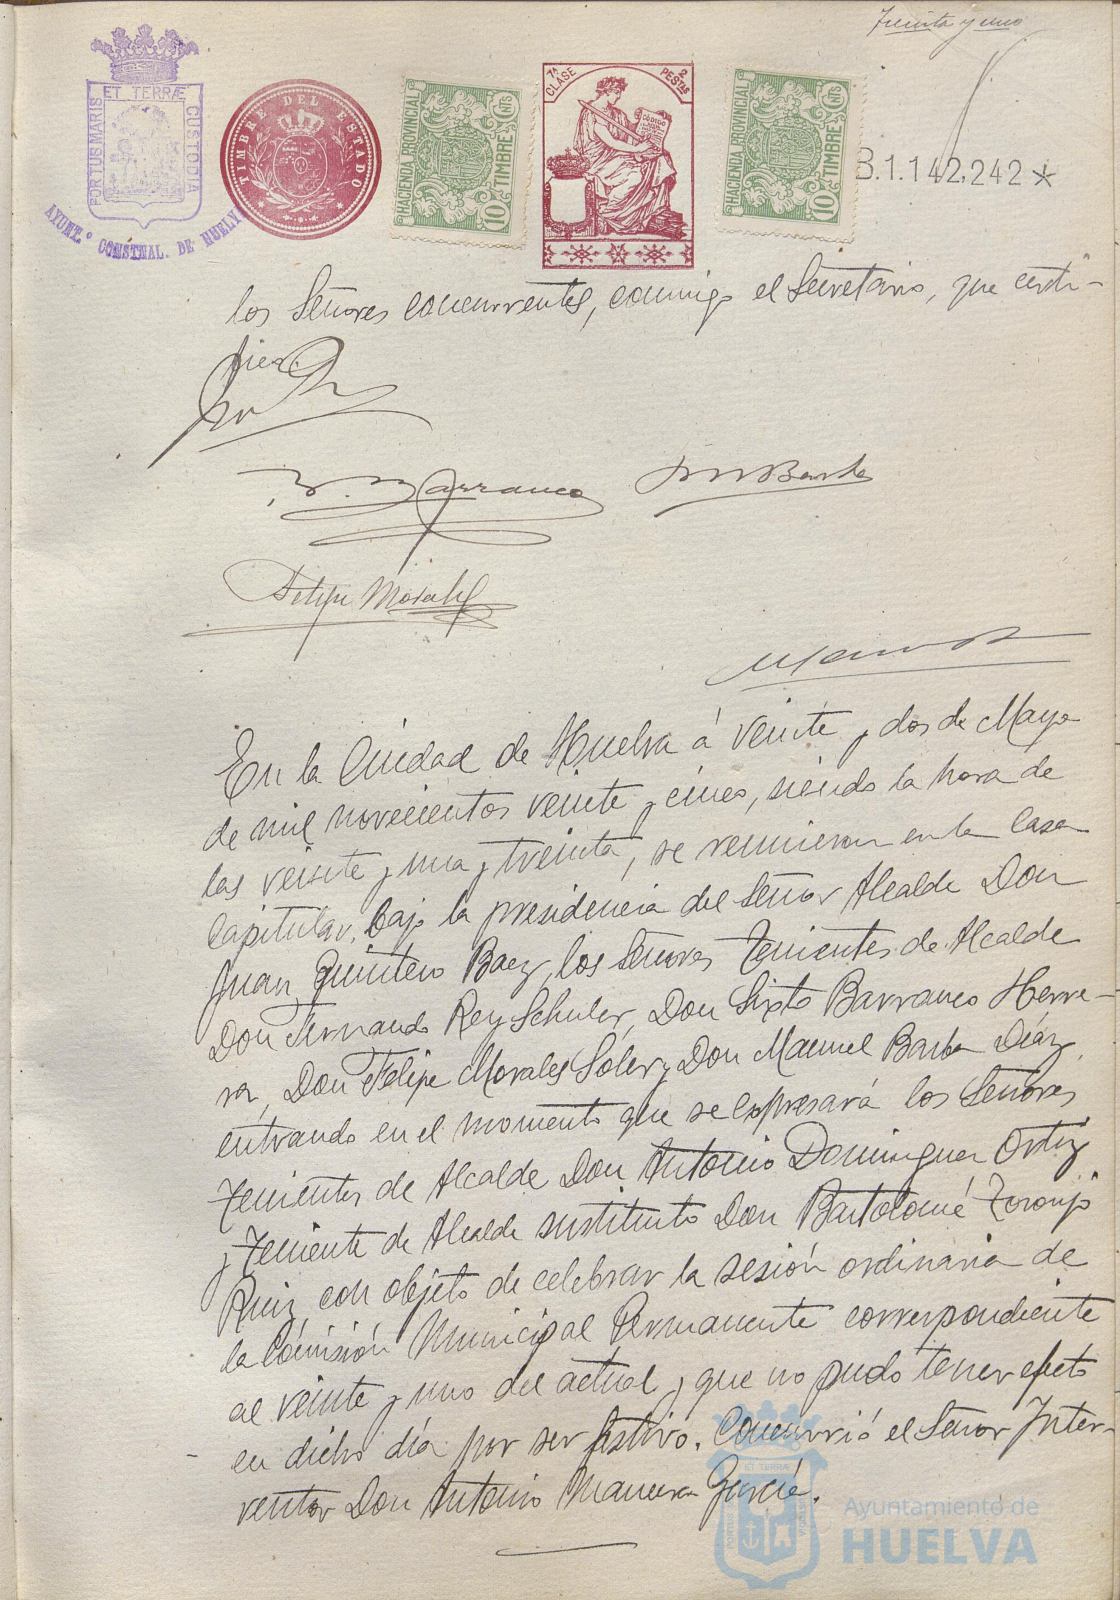 Treinta y uno
PORTUS MARIS ET TERRÆ CUSTODIA
AYUNT.º CONSTNAL. DE HUELVA
TIMBRE DEL ESTADO
HACIENDA PROVINCIAL
10 CNTS
TIMBRE
7ª CLASE
2 PESTAS
CÓDIGO
HACIENDA PROVINCIAL
10 CNTS
TIMBRE
B.1.142.242*
los Señores concurrentes, conmigo el Secretario, que certi-
fico.
Barranco
M Barba
Felipe Morales
En la Ciudad de Huelva á veinte y dos de Mayo
de mil novecientos veinte y cinco, siendo la hora de
las veinte y una y treinta, se reunieron en la Casa
Capitular, bajo la presidencia del Señor Alcalde Don
Juan Quintero Baez, los Señores Tenientes de Alcalde
Don Fernando Rey Schuler, Don Sixto Barranco Herre-
ra, Don Felipe Morales Soler y Don Manuel Barba Díaz,
entrando en el momento que se expresará los Señores
Tenientes de Alcalde Don Antonio Dominguez Ortiz
y Teniente de Alcalde sustituto Don Bartolomé Toronjo
Ruiz, con objeto de celebrar la sesión ordinaria de
la Comisión Municipal Permanente correspondiente
al veinte y uno del actual, y que no pudo tener efecto
en dicho día por ser festivo. Concurrió el Señor Inter-
ventor Don Antonio Mancera García.
Ayuntamiento de
HUELVA